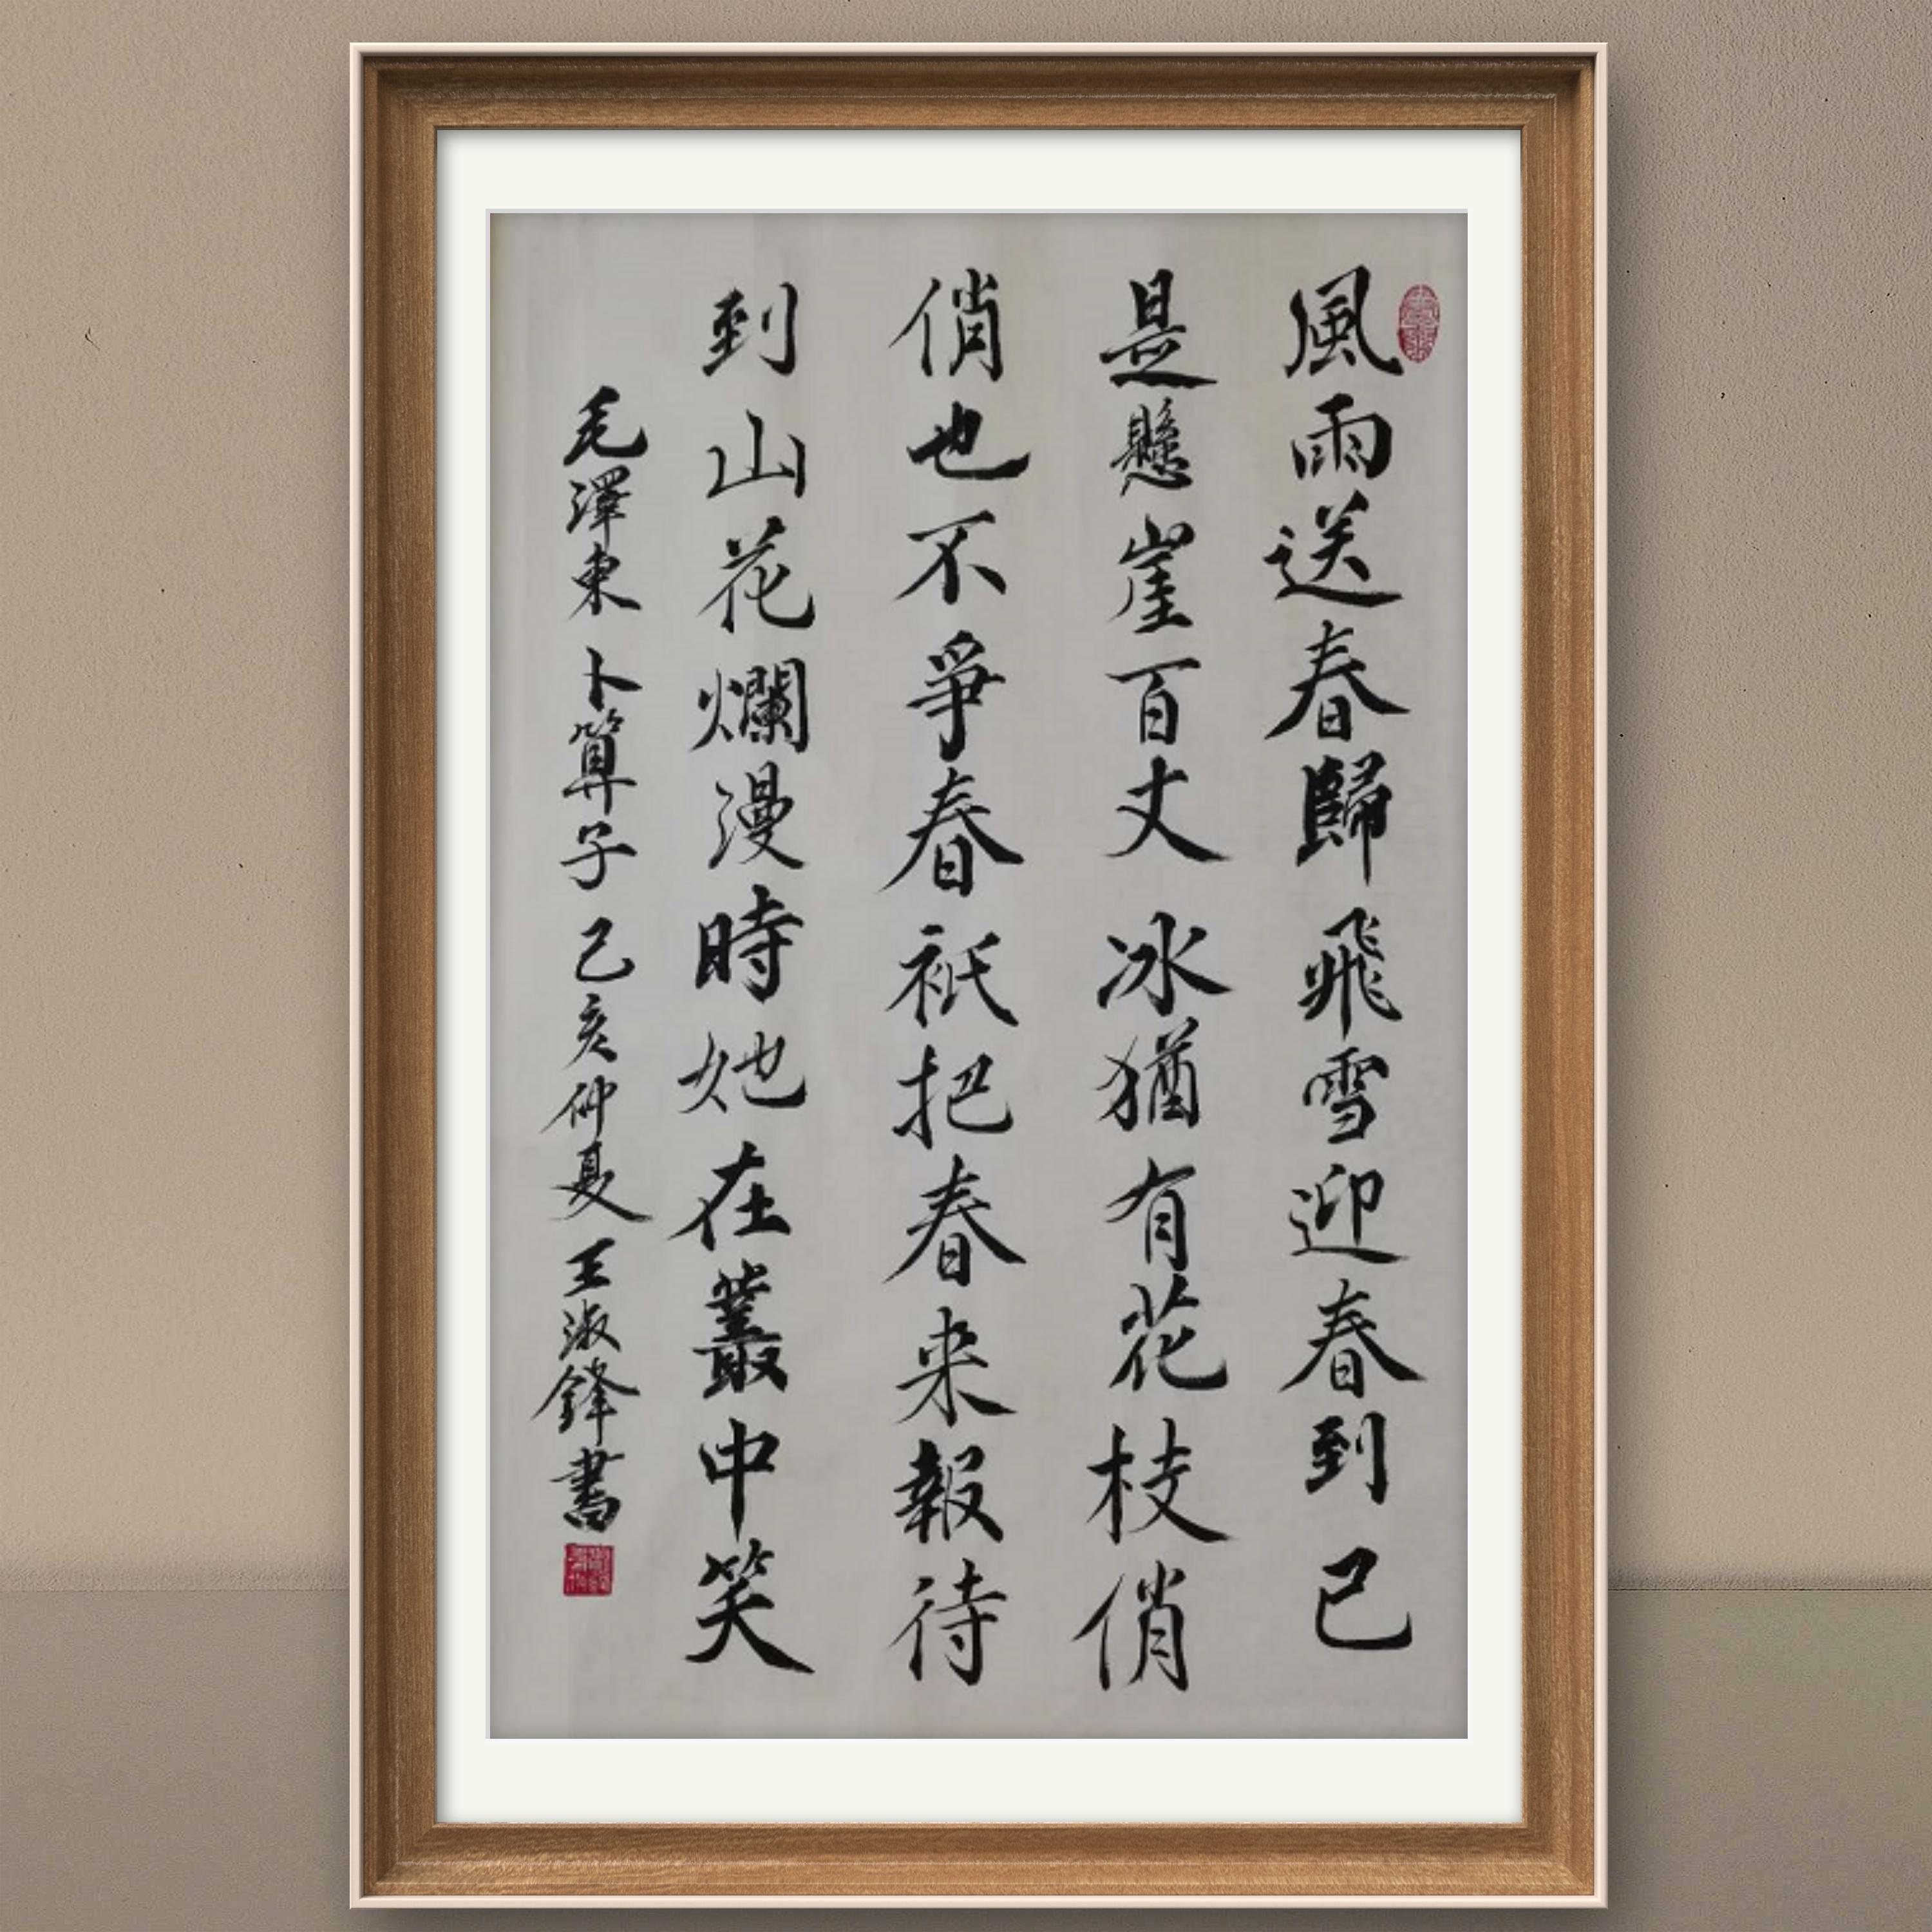 風雨送春歸飛雪迎春到已
是懸崖百丈冰猶有花枝俏
俏也不爭春衹把春来報待
到山花爛漫時她在叢中笑
毛澤東卜算子己亥仲夏王淑鋒書